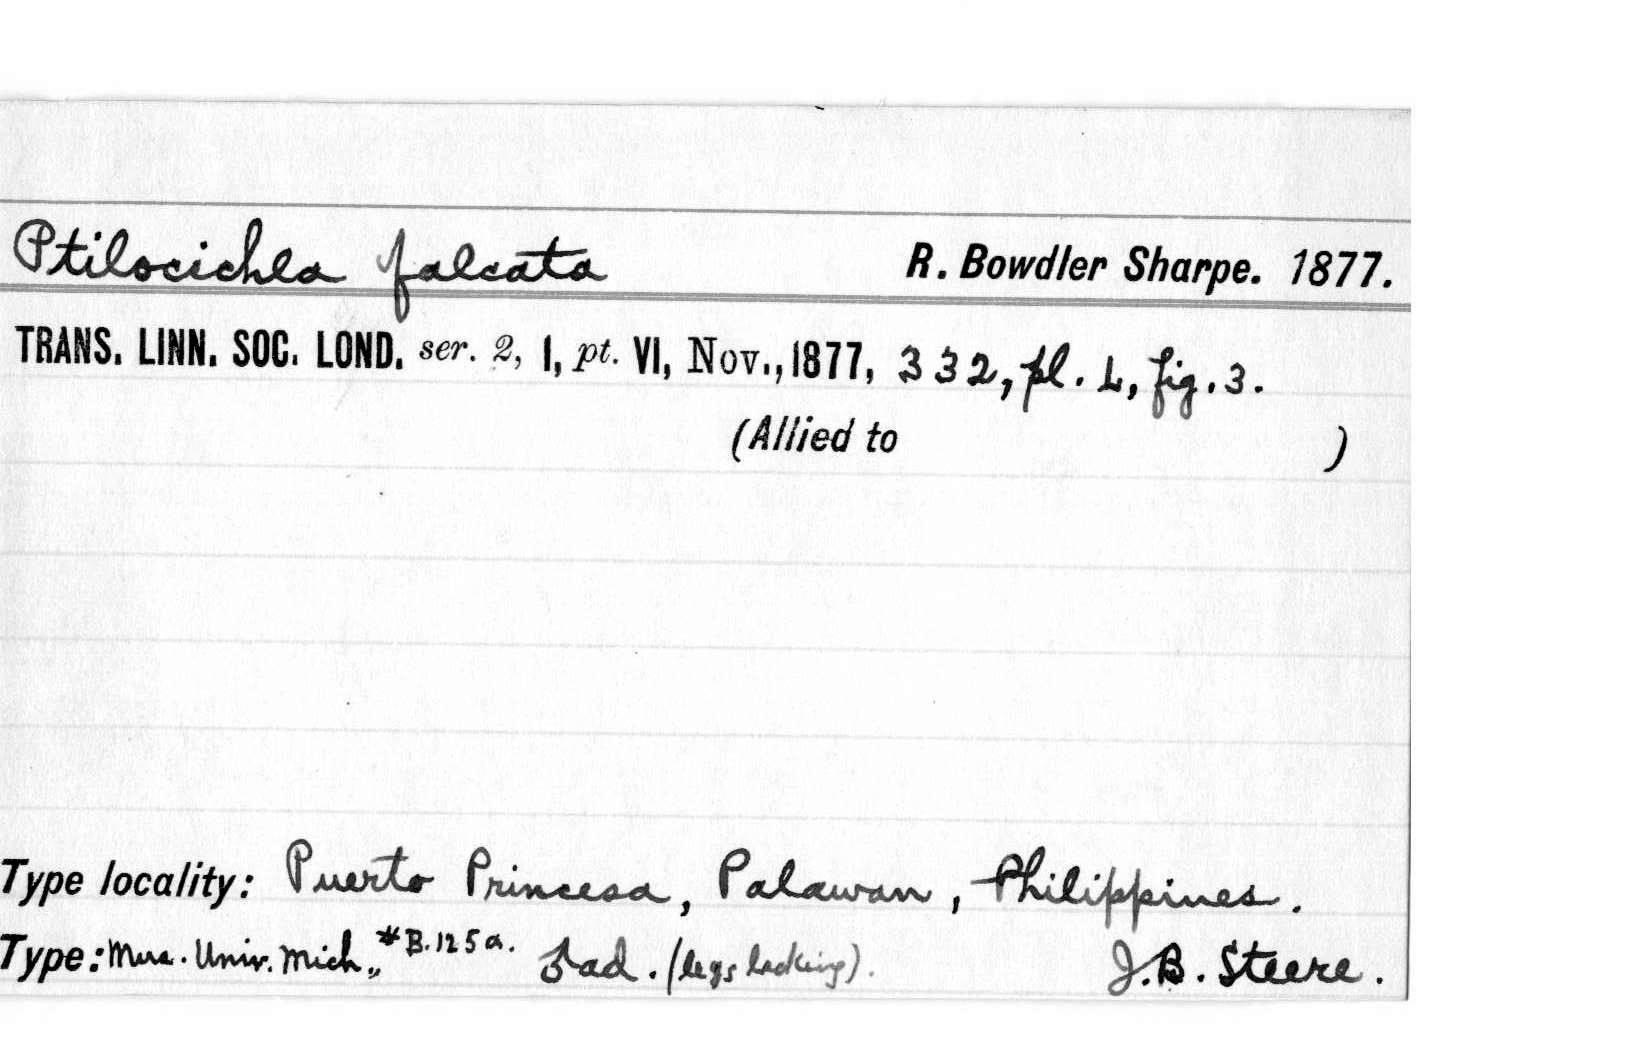 Ptilocichla falcata R. Bowdler Sharpe. 1877.
TRANS. LINN. SOC. LOND. ser. 2, I, pt. VI, Nov., 1877, 332, pl. L, fig. 3.
(Allied to )
Type locality: Puerto Princesa, Palawan, Philippines.
Type: Mus. Univ. Mich., #B.125a. ♂ ad. (legs lacking). J.B. Steere.